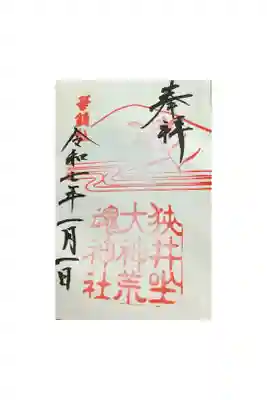 奉拝
狭井坐
大神荒
魂神社
華鎮社
令和七年一月一日